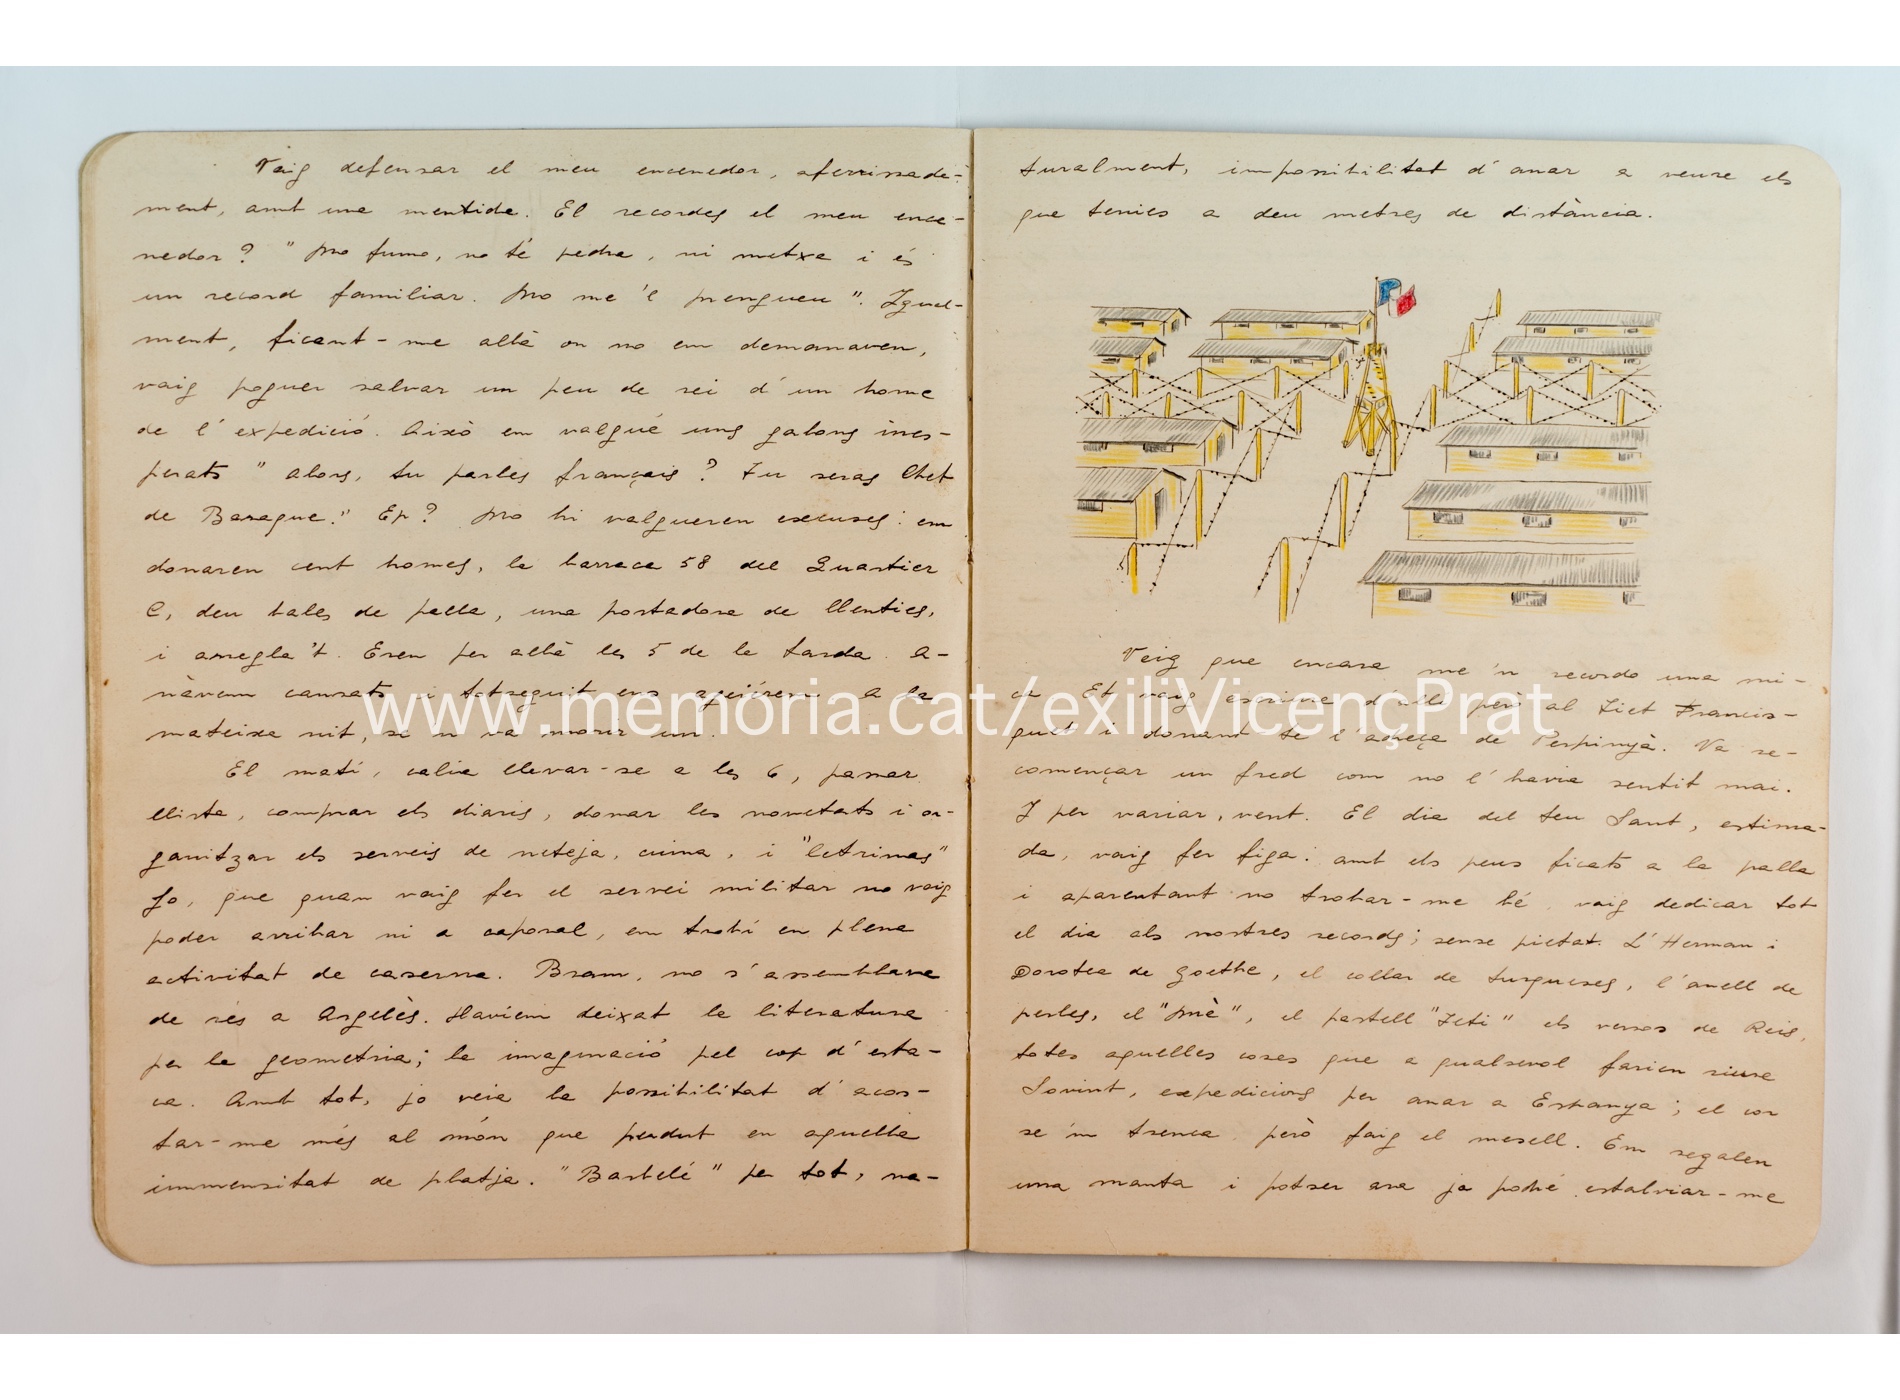 Vaig defensar el meu encenedor, aferrissada-
ment, amb una mentida. El recordes el meu ence-
nedor? "No fumo, no té pedra, ni metxa i és
un record familiar. No me 'l prengueu". Igual-
ment, ficant-me allà on no em demanaven,
vaig poguer salvar un peu de rei d'un home
de l'expedició. Això em valgué uns galons ines-
perats "alors, tu parles français? Tu seras Chef
de Baraque." Ep? No hi valgueren excuses: em
donaren cent homes, la barraca 58 del Quartier
C, deu bales de palla, una portadora de llenties,
i arregla 't. Eren per allà les 5 de la tarda. A-
nàvem cansats i totseguit ens ajeiérem. A la
mateixa nit, se'n va morir un.
El matí, calia llevar-se a les 6, passar
llista, comprar els diaris, donar les novetats i or-
ganitzar els serveis de neteja, cuina, i "letrinas"
Jo, que quan vaig fer el servei militar no vaig
poder arribar ni a caporal, em trobí en plena
activitat de caserna. Bram, no s'assemblava
de rés a Argelès. Haviem deixat la literatura
per la geometria; la imaginació pel cop d'esta-
ca. Amb tot, jo veia la possibilitat d'acos-
tar-me més al món que perdut en aquella
immensitat de platja. "Barbelé" per tot, na-
turalment, impossibilitat d'anar a veure els
que tenies a deu metres de distància.
Veig que encara me 'n recordo una mi-
ca. Et vaig escriure d'allà però al Tiet Francis-
quet i donant-te l'adreça de Perpinyà. Va re-
començar un fred com no l'havia sentit mai.
I per variar, vent. El dia del teu Sant, estima-
da, vaig fer figa: amb els peus ficats a la palla
i aparentant no trobar-me bé, vaig dedicar tot
el dia als nostres records; sense pietat. L'Herman i
Dorotea de Goethe, el collar de turqueses, l'anell de
perles, el "Mè", el pastell "Teti" els versos de Reis,
totes aquelles coses que a qualsevol farien riure
Sovint, expedicions per anar a Espanya; el cor
se 'm trenca, però faig el mesell. Em regalen
una manta i potser ara ja podré estalviar-me
www.memoria.cat/exiliVicençPrat